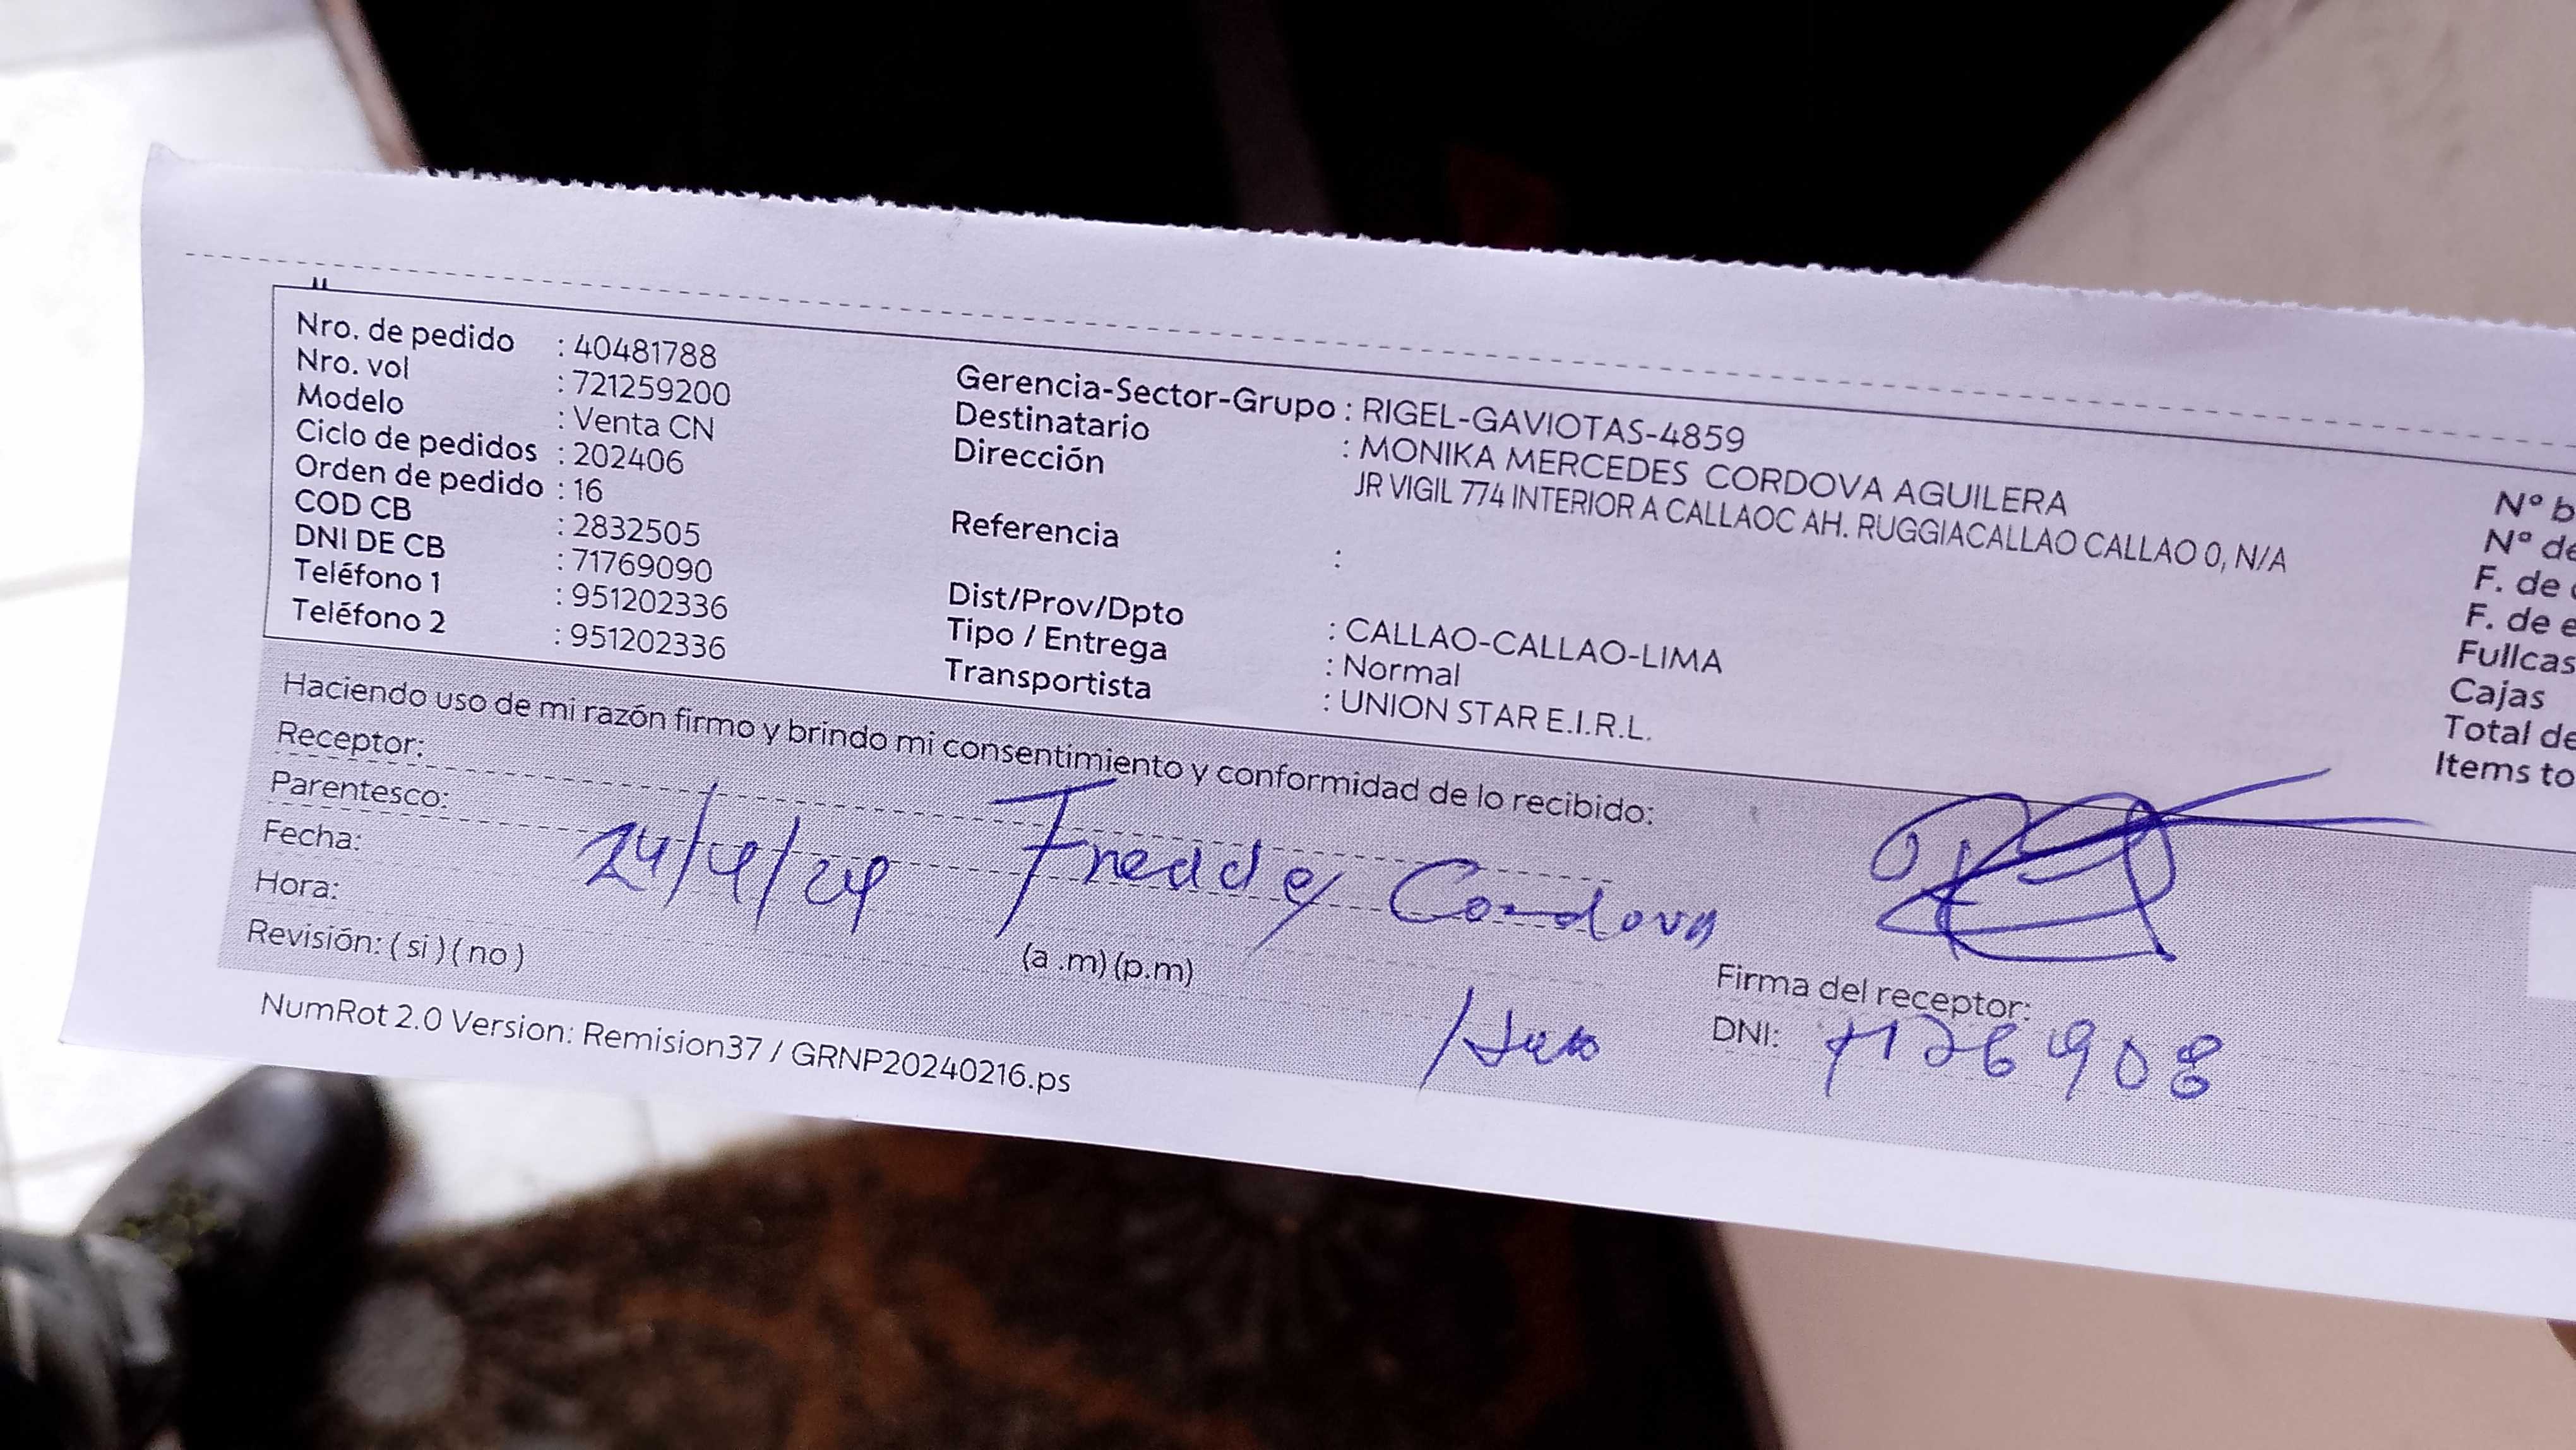 Nro. de pedido : 40481788
Nro. vol : 721259200
Modelo : Venta CN
Ciclo de pedidos : 202406
Orden de pedido : 16
COD CB : 2832505
DNI DE CB : 71769090
Teléfono 1 : 951202336
Teléfono 2 : 951202336
Gerencia-Sector-Grupo : RIGEL-GAVIOTAS-4859
Destinatario : MONIKA MERCEDES CORDOVA AGUILERA
Dirección JR VIGIL 774 INTERIOR A CALLAOC AH. RUGGIACALLAO CALLAO 0, N/A
Referencia :
Dist/Prov/Dpto : CALLAO-CALLAO-LIMA
Tipo / Entrega : Normal
Transportista : UNION STAR E.I.R.L.
Nº b
Nº de
F. de
F. de e
Fullcas
Cajas
Total de
Items to
Haciendo uso de mi razón firmo y brindo mi consentimiento y conformidad de lo recibido:
Receptor:
Parentesco:
Fecha: 24/4/24 Freddy Cordova
Hora:
(a .m) (p.m)
Revisión: ( si ) ( no )
Firma del receptor:
DNI:
NumRot 2.0 Version: Remision37 / GRNP20240216.ps